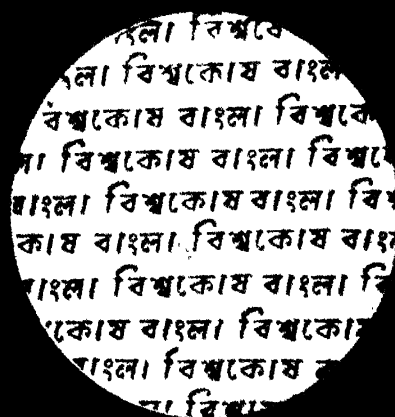 বাংলা বিশ্বকোষ
বাংলা বিশ্বকোষ বাংলা
বিশ্বকোষ বাংলা বিশ্বকোষ
বাংলা বিশ্বকোষ বাংলা বিশ্বকোষ
বাংলা বিশ্বকোষ বাংলা বিশ্বকোষ
কোষ বাংলা বিশ্বকোষ বাংলা
বাংলা বিশ্বকোষ বাংলা বি
কোষ বাংলা বিশ্বকোষ
বাংলা বিশ্বকোষ
বিশ্বকোষ